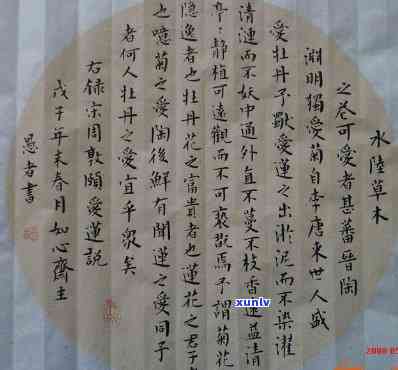 水陸草木
之花可愛者甚蕃晉陶
淵明獨愛菊自李唐來世人盛
愛牡丹予獨愛蓮之出淤泥而不染濯
清漣而不妖中通外直不蔓不枝香遠益清
亭〻靜植可遠觀而不可褻翫焉予謂菊花
隱逸者也牡丹花之富貴者也蓮花之君子
也噫菊之愛陶後鮮有聞蓮之愛同予
者何人牡丹之愛宜乎衆矣
右録宋周敦頤愛蓮説
戊子年末春月如心齋主
愚者書
xunlv
2008 05